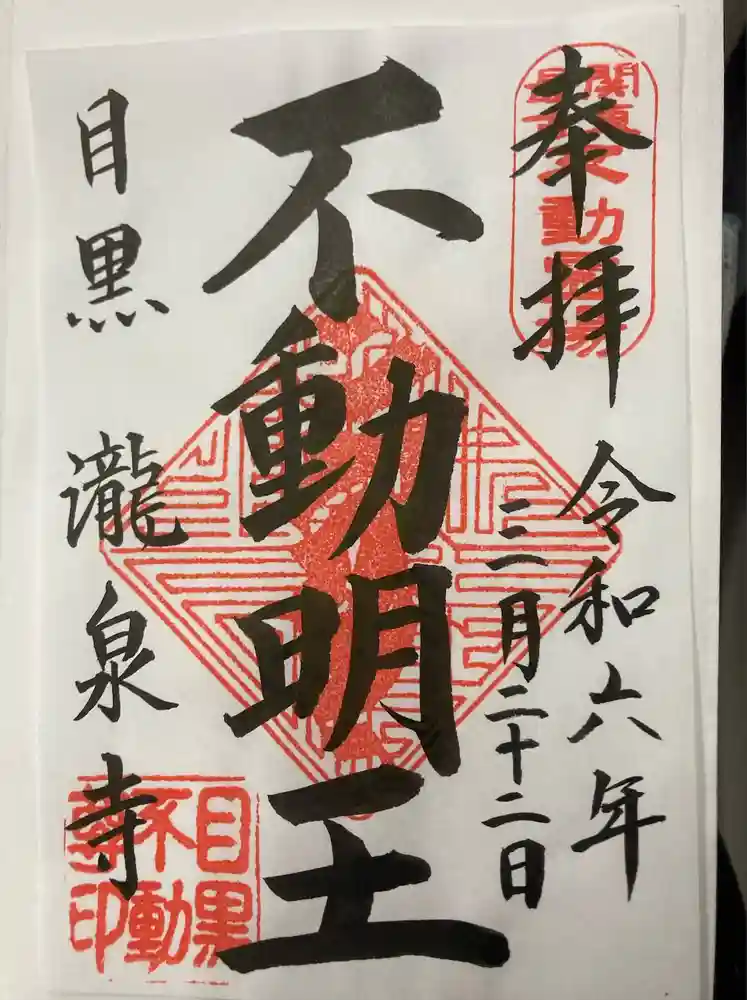 奉拝
関東
最古
不動霊場
令和六年
三月二十二日
不動明王
目黒 瀧泉寺
目黒
不動
尊印